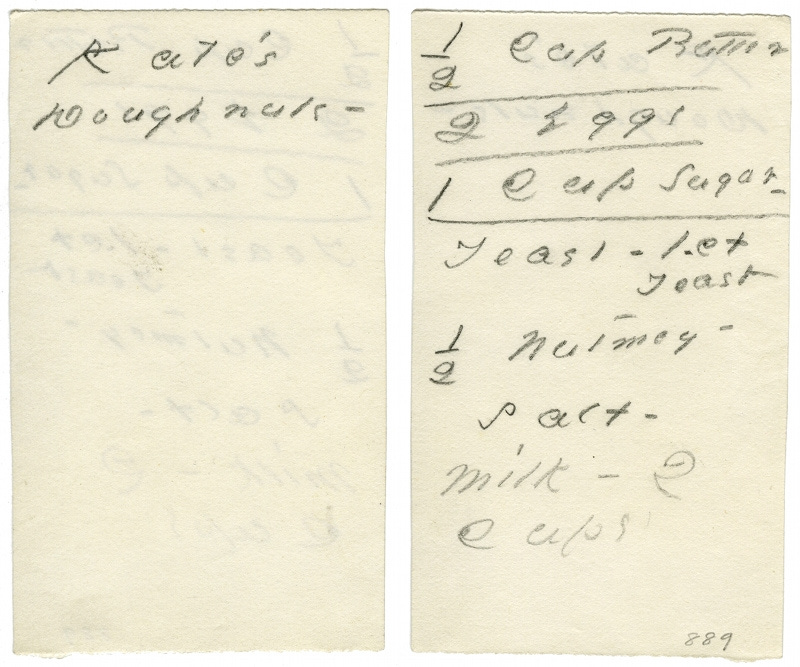 Kate's
Doughnuts -
1/2 Cup Butter
2 Eggs
1 Cup Sugar -
Yeast - 1.ct
Yeast
1/2 Nutmeg -
Salt -
Milk - 2
Cups
889